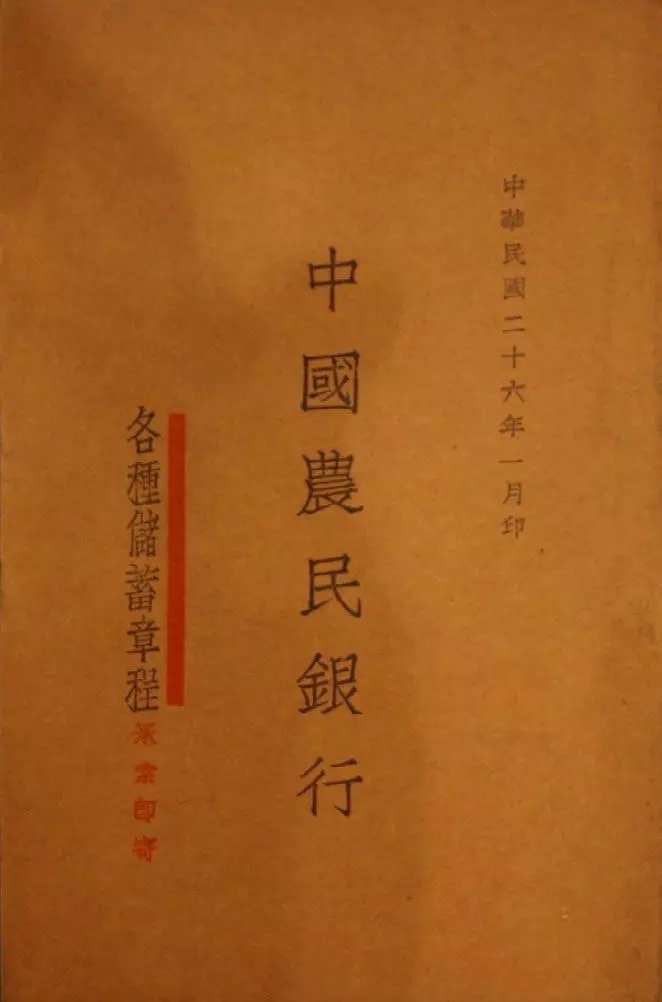 中華民國二十六年一月印
中國農民銀行
各種儲蓄章程
承索即寄